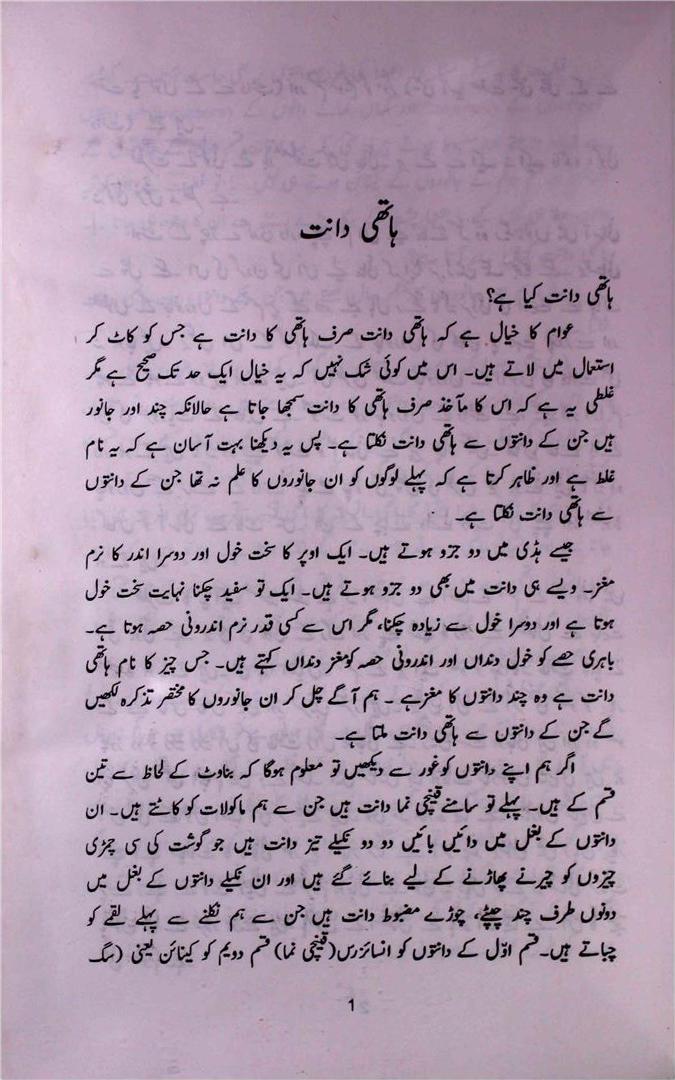 ہاتھی دانت
ہاتھی دانت کیا ہے؟
عوام کا خیال ہے کہ ہاتھی دانت صرف ہاتھی کا دانت ہے جس کو کاٹ کر
استعمال میں لاتے ہیں۔ اس میں کوئی شک نہیں کہ یہ خیال ایک حد تک صحیح ہے مگر
غلطی یہ ہے کہ اس کا مآخذ صرف ہاتھی کا دانت سمجھا جاتا ہے حالانکہ چند اور جانور
ہیں جن کے دانتوں سے ہاتھی دانت نکلتا ہے۔ پس یہ دیکھنا بہت آسان ہے کہ یہ نام
غلط ہے اور ظاہر کرتا ہے کہ پہلے لوگوں کو ان جانوروں کا علم نہ تھا جن کے دانتوں
سے ہاتھی دانت نکلتا ہے۔
جیسے ہڈی میں دو جزو ہوتے ہیں۔ ایک اوپر کا سخت خول اور دوسرا اندر کا نرم
مغز۔ ویسے ہی دانت میں بھی دو جزو ہوتے ہیں۔ ایک تو سفید چکنا نہایت سخت خول
ہوتا ہے اور دوسرا خول سے زیادہ چکنا، مگر اس سے کسی قدر نرم اندرونی حصہ ہوتا ہے۔
باہری حصے کو خول دنداں اور اندرونی حصہ کومغز دنداں کہتے ہیں۔ جس چیز کا نام ہاتھی
دانت ہے وہ چند دانتوں کا مغزہے ۔ ہم آگے چل کر ان جانوروں کا مختصر تذکرہ لکھیں
گے جن کے دانتوں سے ہاتھی دانت ملتا ہے۔
اگر ہم اپنے دانتوں کو غور سے دیکھیں تو معلوم ہوگا کہ بناوٹ کے لحاظ سے تین
قسم کے ہیں۔ پہلے تو سامنے قینچی نما دانت ہیں جن سے ہم ماکولات کو کاٹتے ہیں۔ ان
دانتوں کے بغل میں دائیں بائیں دو دو نکیلے تیز دانت ہیں جو گوشت کی سی چمڑی
چیزوں کو چیرنے پھاڑنے کے لیے بنائے گئے ہیں اور ان نکیلے دانتوں کے بغل میں
دونوں طرف چند چپٹے، چوڑے مضبوط دانت ہیں جن سے ہم نگلنے سے پہلے لقمے کو
چباتے ہیں۔ قسم اوّل کے دانتوں کو انسائزرس(قینچی نما) قسم دویم کو کینائن یعنی (سگ
1